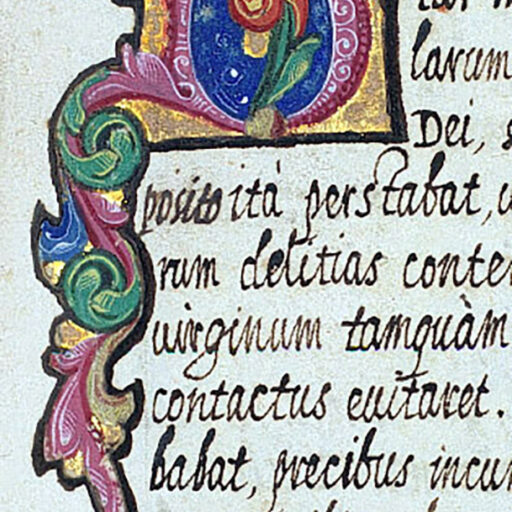 larum
Dei, s
posito ità perstabat, u
rum delitias conte
uirginum tamquàm
contactus euitaret.
babat, precibus incu